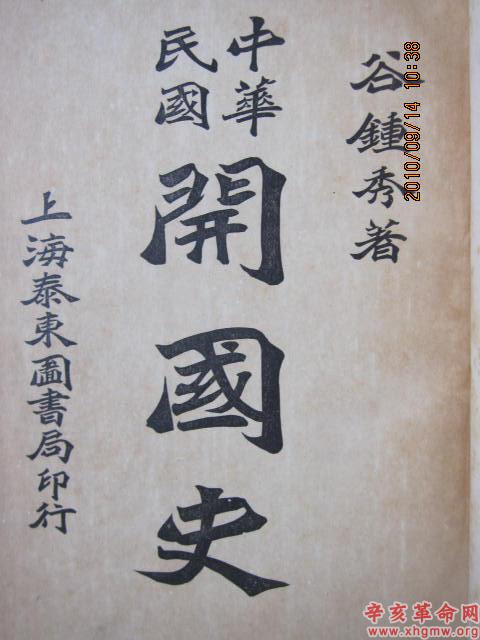 谷鍾秀著
中華
民國
開國史
上海泰東圖書局印行
2010/09/14 10:38
辛亥革命网
www.xhgmw.org